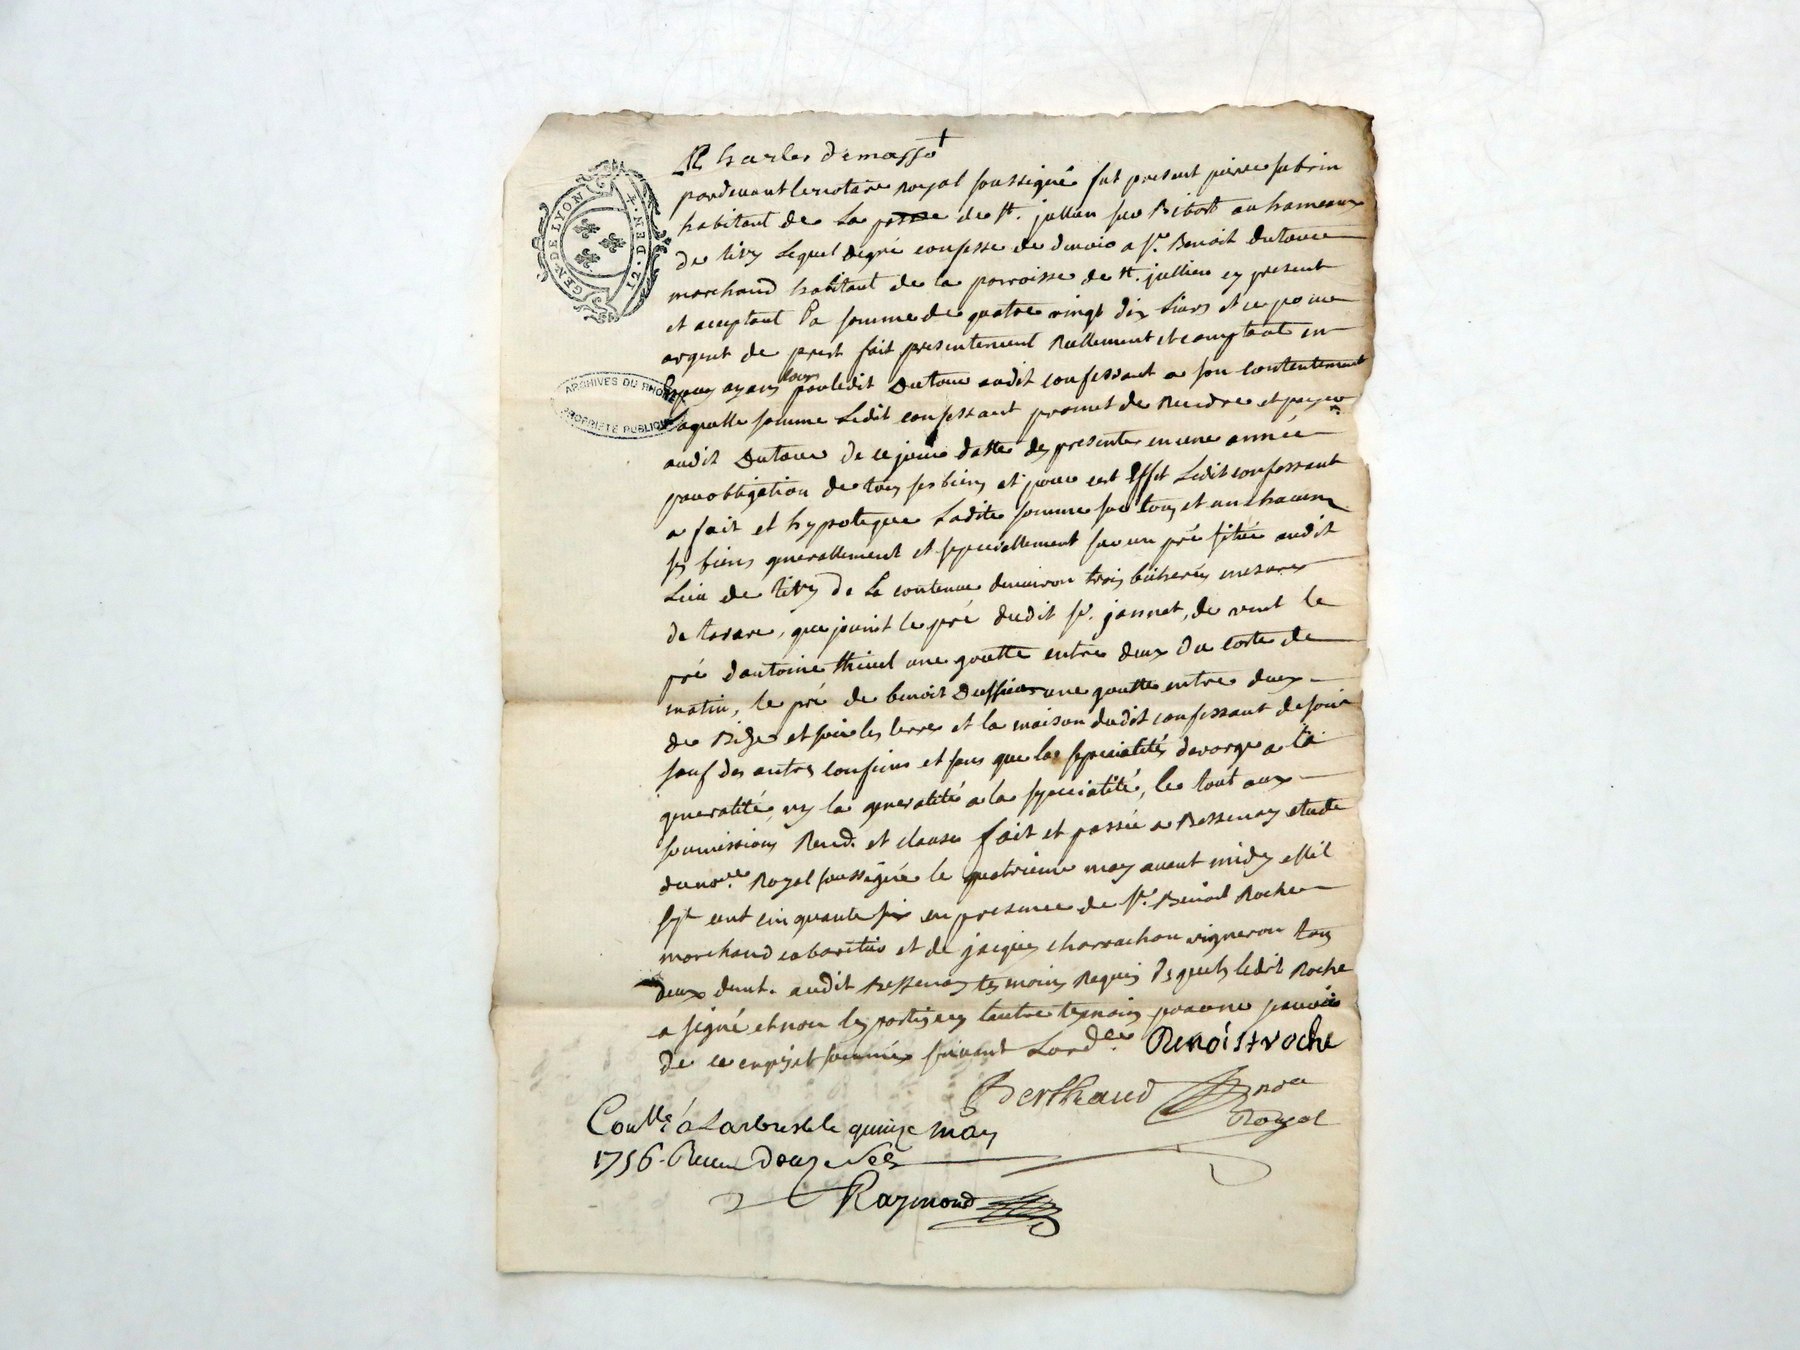 Charles demasso
pardevant le notaire Royal soussigné fut present pierre fabrin
habitant de La de St. jullien sur Bibost au hameaux
de tivy Lequel degré confesse de devoir a Sr. Benoit Dutour
marchand habitant de la parroisse de St. jullien cy present
et acceptant La somme de quatre vingt dix Livres et ce pour
argent de prest fait presentement Reellement et comptant en
Espèces ayans cours par ledit Dutour audit confessant a son contentement
Laquelle somme Ledit confessant promet de Rendre et payer
audit Dutour de ce jour datte des presentes en une année
par obligation de tous ses biens et pour cest Effet Ledit confessant
a fait et hypoteque Ladite somme sur tous et un chacun
ses biens generallement et specialement sur un pré sitüé audit
Lieu de tivy de La contenue denviron trois bicherées mesure
de tarare, que jouint le pré dudit Sr. jannet, de vent le
pré dantoine thivel une goutte entre deux du costé de
matin, le pré de benoit Dussieur une goutte entre deux
de Bize et soir les terres et la maison dudit confessant de soir
sauf des autres confins et sans que la specialités deroge a la
generalité, ny la generalité a la specialité, le tout aux
soumissions Rend. et clauses fait et passé a Bessenay etude
du nore. Royal soussigné le quatrieme may avant midy mil
sept cent cinquante six en presence de Sr. Benoit Roche
marchand cabaretier et de jacques charrachon vigneron tous
deux demt. audit Bessenay temoins Requis desquels ledit Roche
a signé et non les parties ny lautre temoins pour ne scavoir
de ce enquis et sommés suivant Lordce. Benoist roche
Berthaud nore
Royal
Coullé a Larbresle le quinze may
1756. Receu douze sols
Raymond
GEN·DE·LYON
12·DEN·
ARCHIVES DU RHÔNE
PROPRIETÉ PUBLIQUE